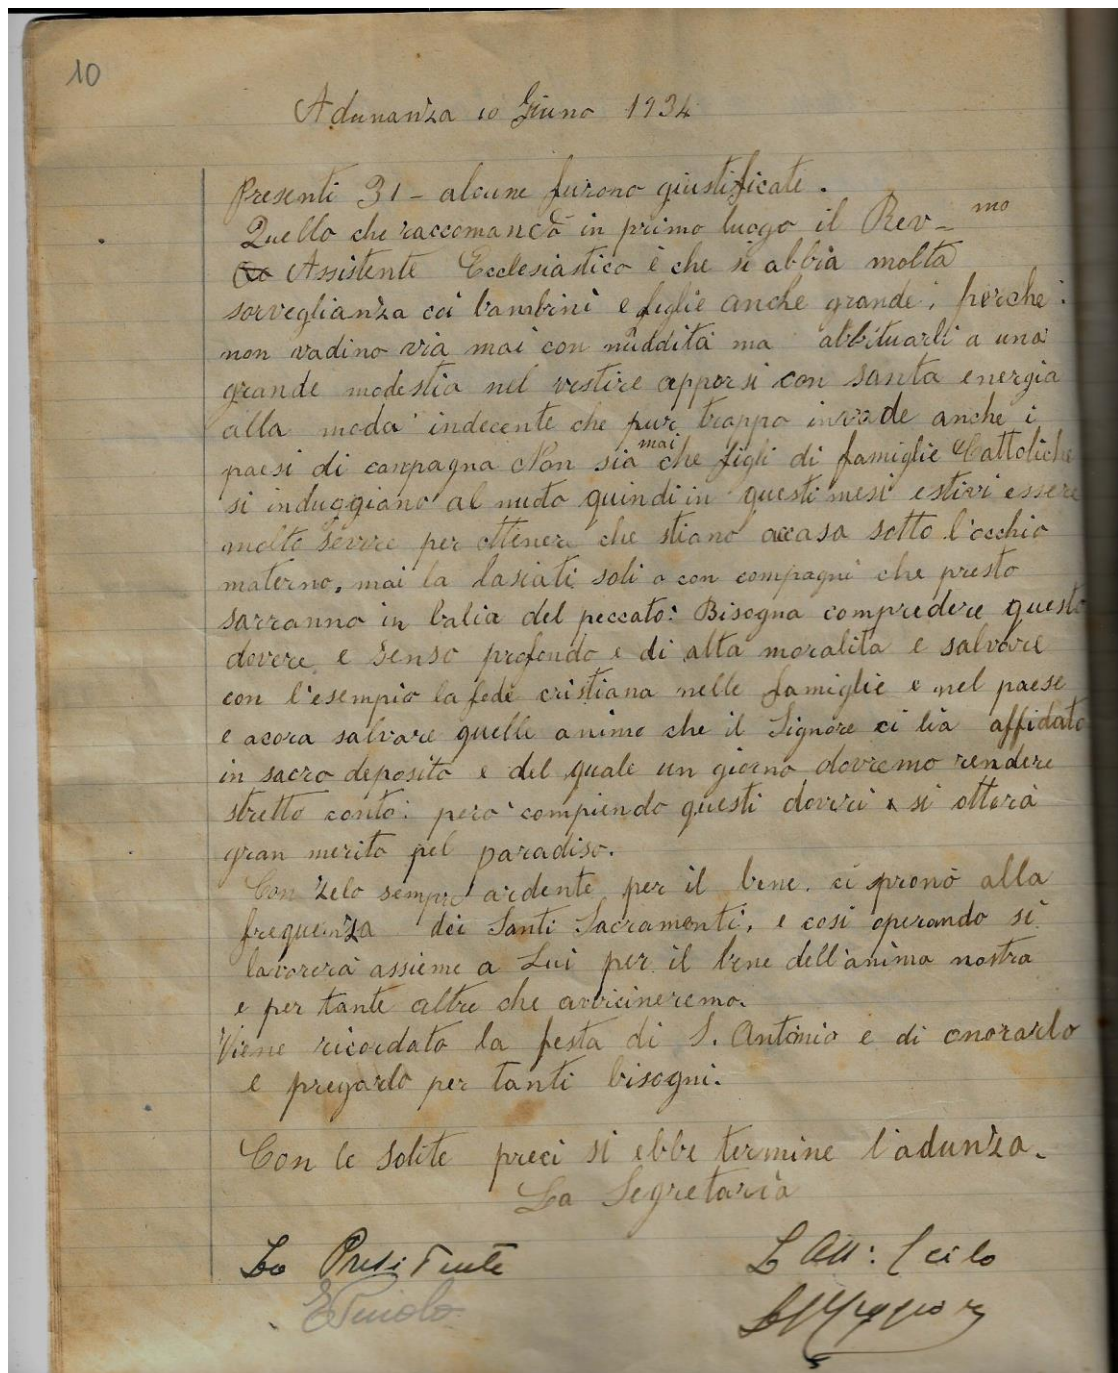 10
Adunanza 10 Giuno 1934
Presenti 31 - alcune furono giustificate.
Quello che raccomandò in primo luogo il Rev-mo
Assistente Ecclesiastico è che si abbia molta
sorveglianza coi bambini e figlie anche grande, perche
non vadino via mai con nuddità ma abbituarli a una
grande modestia nel vestire apporsi con santa energia
alla moda indecente che pur troppo invade anche i
paesi di canpagna Non sia mai che figli di famiglie Cattoliche
si induggiano al nudo quindi in questi mesi estivi essere
molto severe per ottenere che stiano accasa sotto l'occhio
materno, mai la lasciati soli o con compagni che presto
sarranno in balia del peccato: Bisogna compredere questo
dovere e senso profondo e di alta moralita e salvare
con l'esempio la fede cristiana nelle famiglie e nel paese
e acora salvare quelle anime che il Signore ci lià affidato
in sacro deposito e del quale un giorno dovremo rendere
stretto conto: però compiendo questi doveri si otterà
gran merito pel paradiso.
Con zelo sempre ardente per il bene ci spronò alla
frequenza dei Santi Sacramenti, e così operando si
lavorerà assieme a Lui per il bene dell'anima nostra
e per tante altre che avvicineremo.
Viene ricordato la festa di S. Antonio e di onorarlo
e pregarlo per tanti bisogni.
Con le solite preci si ebbe termine l'adunza.
La Segretaria
La Presidente
L Ass: